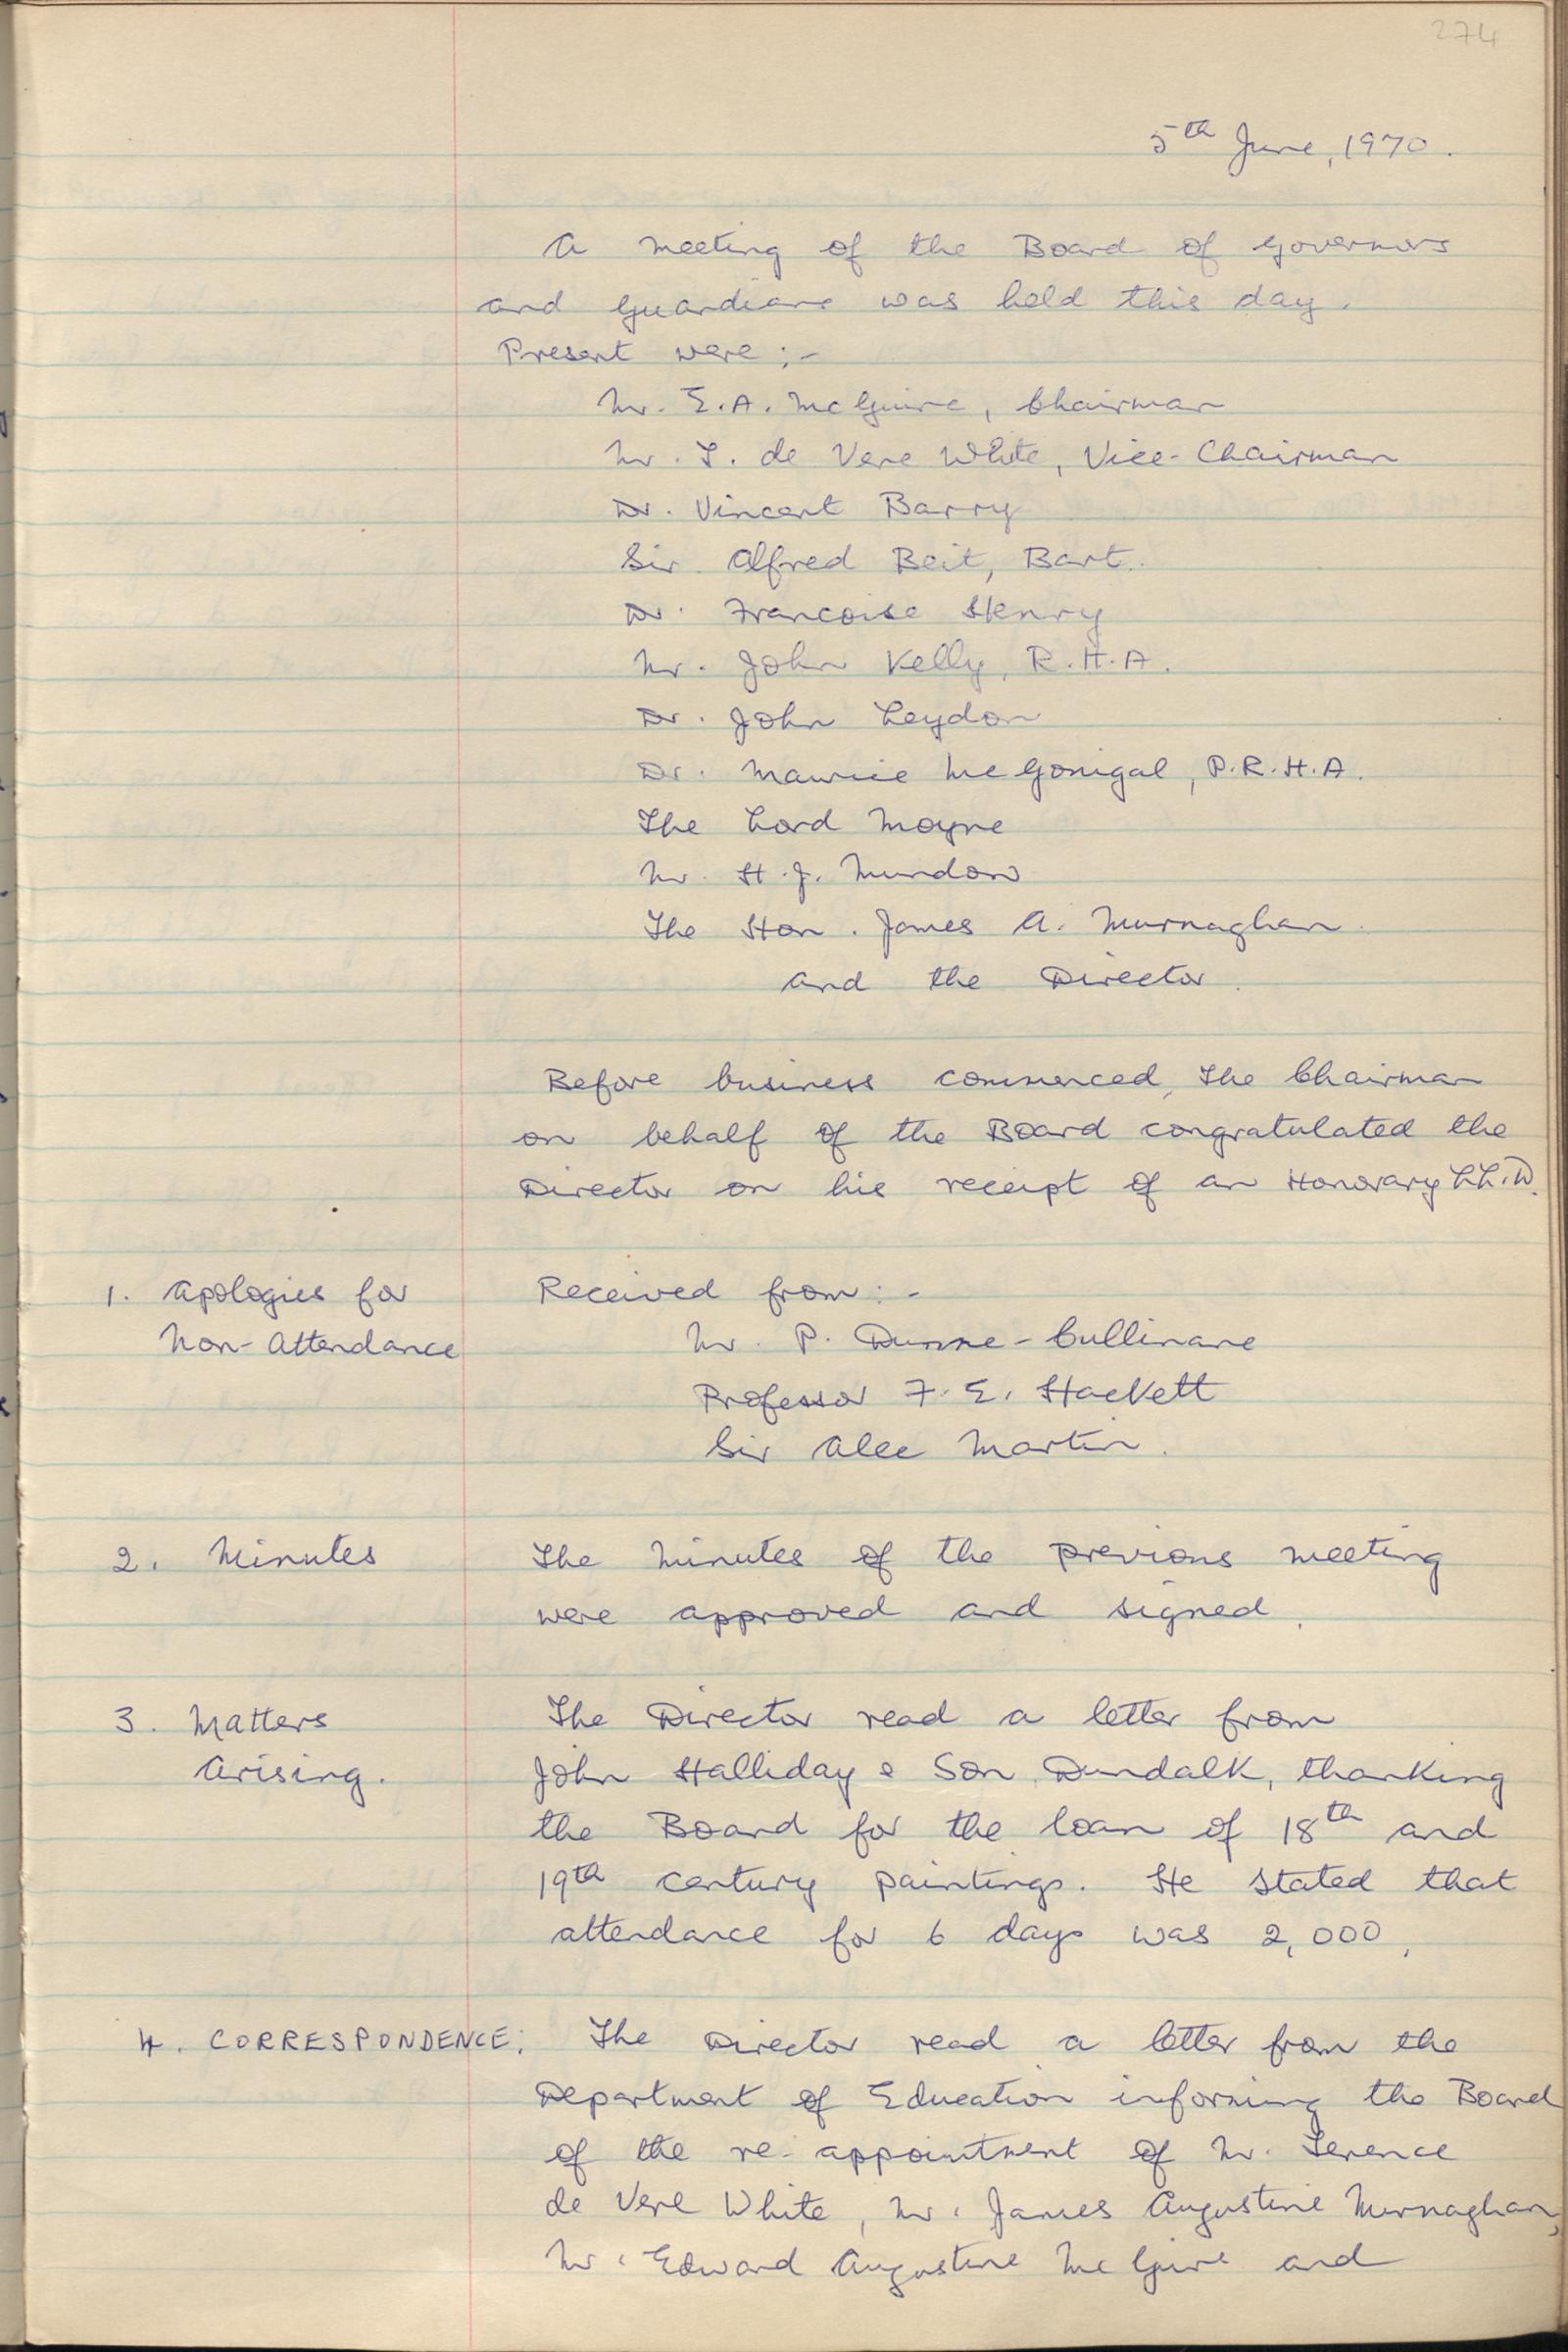 274
5th June, 1970.
A meeting of the Board of Governors
and Guardians was held this day.
Present were :-
Mr. E.A. McGuire, Chairman
Mr. T. de Vere White, Vice-Chairman
Dr. Vincent Barry
Sir. Alfred Beit, Bart.
Dr. Francoise Henry
Mr. John Kelly, R.H.A.
Dr. John Leydon
Dr. Maurice McGonigal, P.R.H.A.
The Lord Moyne
Mr. H.J. Mundow
The Hon. James A. Murnaghan.
and the Director.
Before business commenced, the Chairman
on behalf of the Board congratulated the
Director on his receipt of an Honorary LL.D.
1. Apologies for Received from :-
Non-Attendance Mr. P. Dunne-Cullinane
Professor F. E. Hackett
Sir Alec Martin.
2. Minutes The Minutes of the previous meeting
were approved and signed.
3. Matters The Director read a letter from
Arising. John Halliday & Son, Dundalk, thanking
the Board for the loan of 18th and
19th century paintings. He stated that
attendance for 6 days was 2,000,
4. CORRESPONDENCE: The Director read a letter from the
Department of Education informing the Board
of the re-appointment of Mr. Terence
de Vere White, Mr. James Augustine Murnaghan,
Mr. Edward Augustine McGuire and